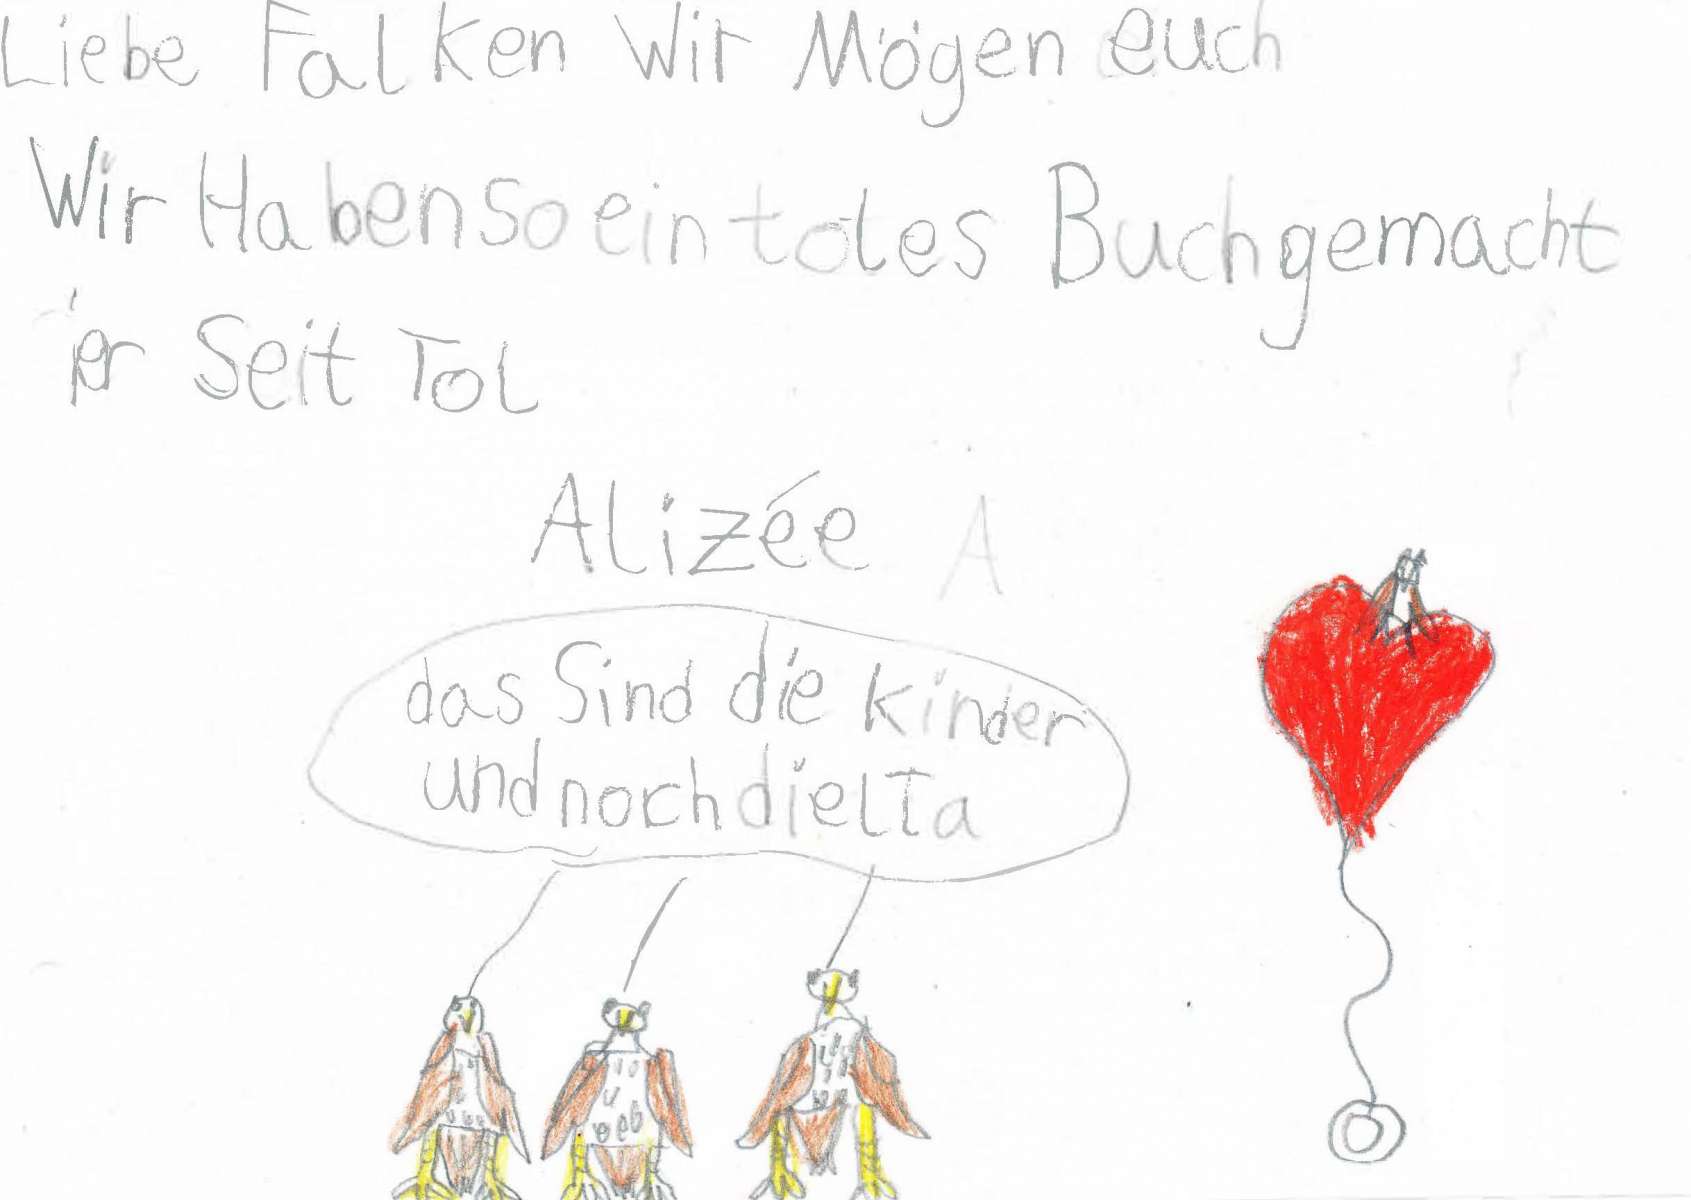 Liebe Falken Wir Mögen euch
Wir Haben so ein toles Buch gemacht
ier Seit Tol
Alizée A
das Sind die kinder
und noch die elTa